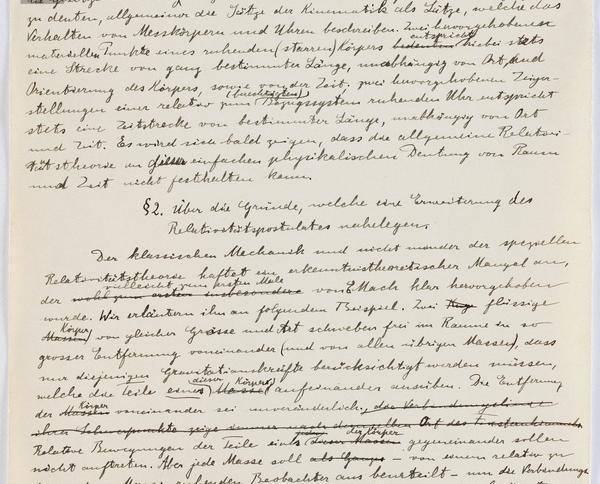 zu deuten, allgemeiner die Sätze der Kinematik als Sätze, welche das
Verhalten von Messkörpern und Uhren beschreiben. Zwei hervorgehobenen
materiellen Punkte eines ruhenden (starren) Körpers bedeuten entspricht hiebei stets
eine Strecke von ganz bestimmter Länge, unabhängig von Ort und
Orientierung des Körpers, sowie von der Zeit; zwei hervorgehobenen Zeiger-
stellungen einer relativ zum (berechtigten) Bezugssystem ruhenden Uhr entspricht
stets eine Zeitstrecke von bestimmter Länge, unabhängig von Ort
und Zeit. Es wird sich bald zeigen, dass die allgemeine Relativi-
tätstheorie an dieser einfachen physikalischen Deutung von Raum
und Zeit nicht festhalten kann.
§2. Über die Gründe, welche eine Erweiterung des
Relativitätspostulates nahelegen.
Der klassischen Mechanik und nicht minder der speziellen
Relativitätstheorie haftet ein erkenntnistheoretischer Mangel an,
der vielleicht zum ersten Male wohl zum ersten insbesondere von E. Mach klar hervorgehoben
wurde. Wir erläutern ihn an folgendem Beispiel. Zwei flüssige
Körper Massen von gleicher Grösse und Art schweben frei im Raume in so
grosser Entfernung voneinander (und von allen übrigen Massen), dass
nur diejenigen Gravitationskräfte berücksichtigt werden müssen,
welche die Teile eines dieser Körper Masse aufeinander ausüben. Die Entfernung
der Körper Massen voneinander sei unveränderlich, die Verbindungslinie
ihrer Schwerpunkte zeige immer nach demselben Ort des Fixsternhimmels
Relative Bewegungen der Teile eines der Körper dieser Massen gegeneinander sollen
nicht auftreten. Aber jede Masse soll als Ganzes - von einem relativ zu
Masse ruhenden Beobachter aus beurteilt - um die Verbindungs-